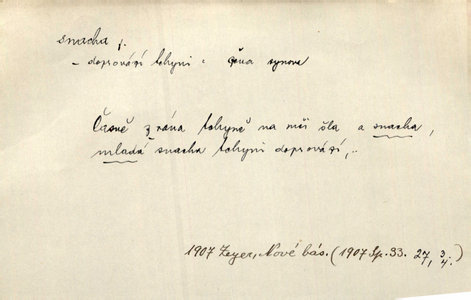 snacha f.
– doprovází tchyni : žena synova
Časně z rána tchyně na mši šla a snacha,
mladá snacha tchyni doprovází,..
1907 Zeyer, Nové bás. (1907 Sp. 33. 27, 3/4.)